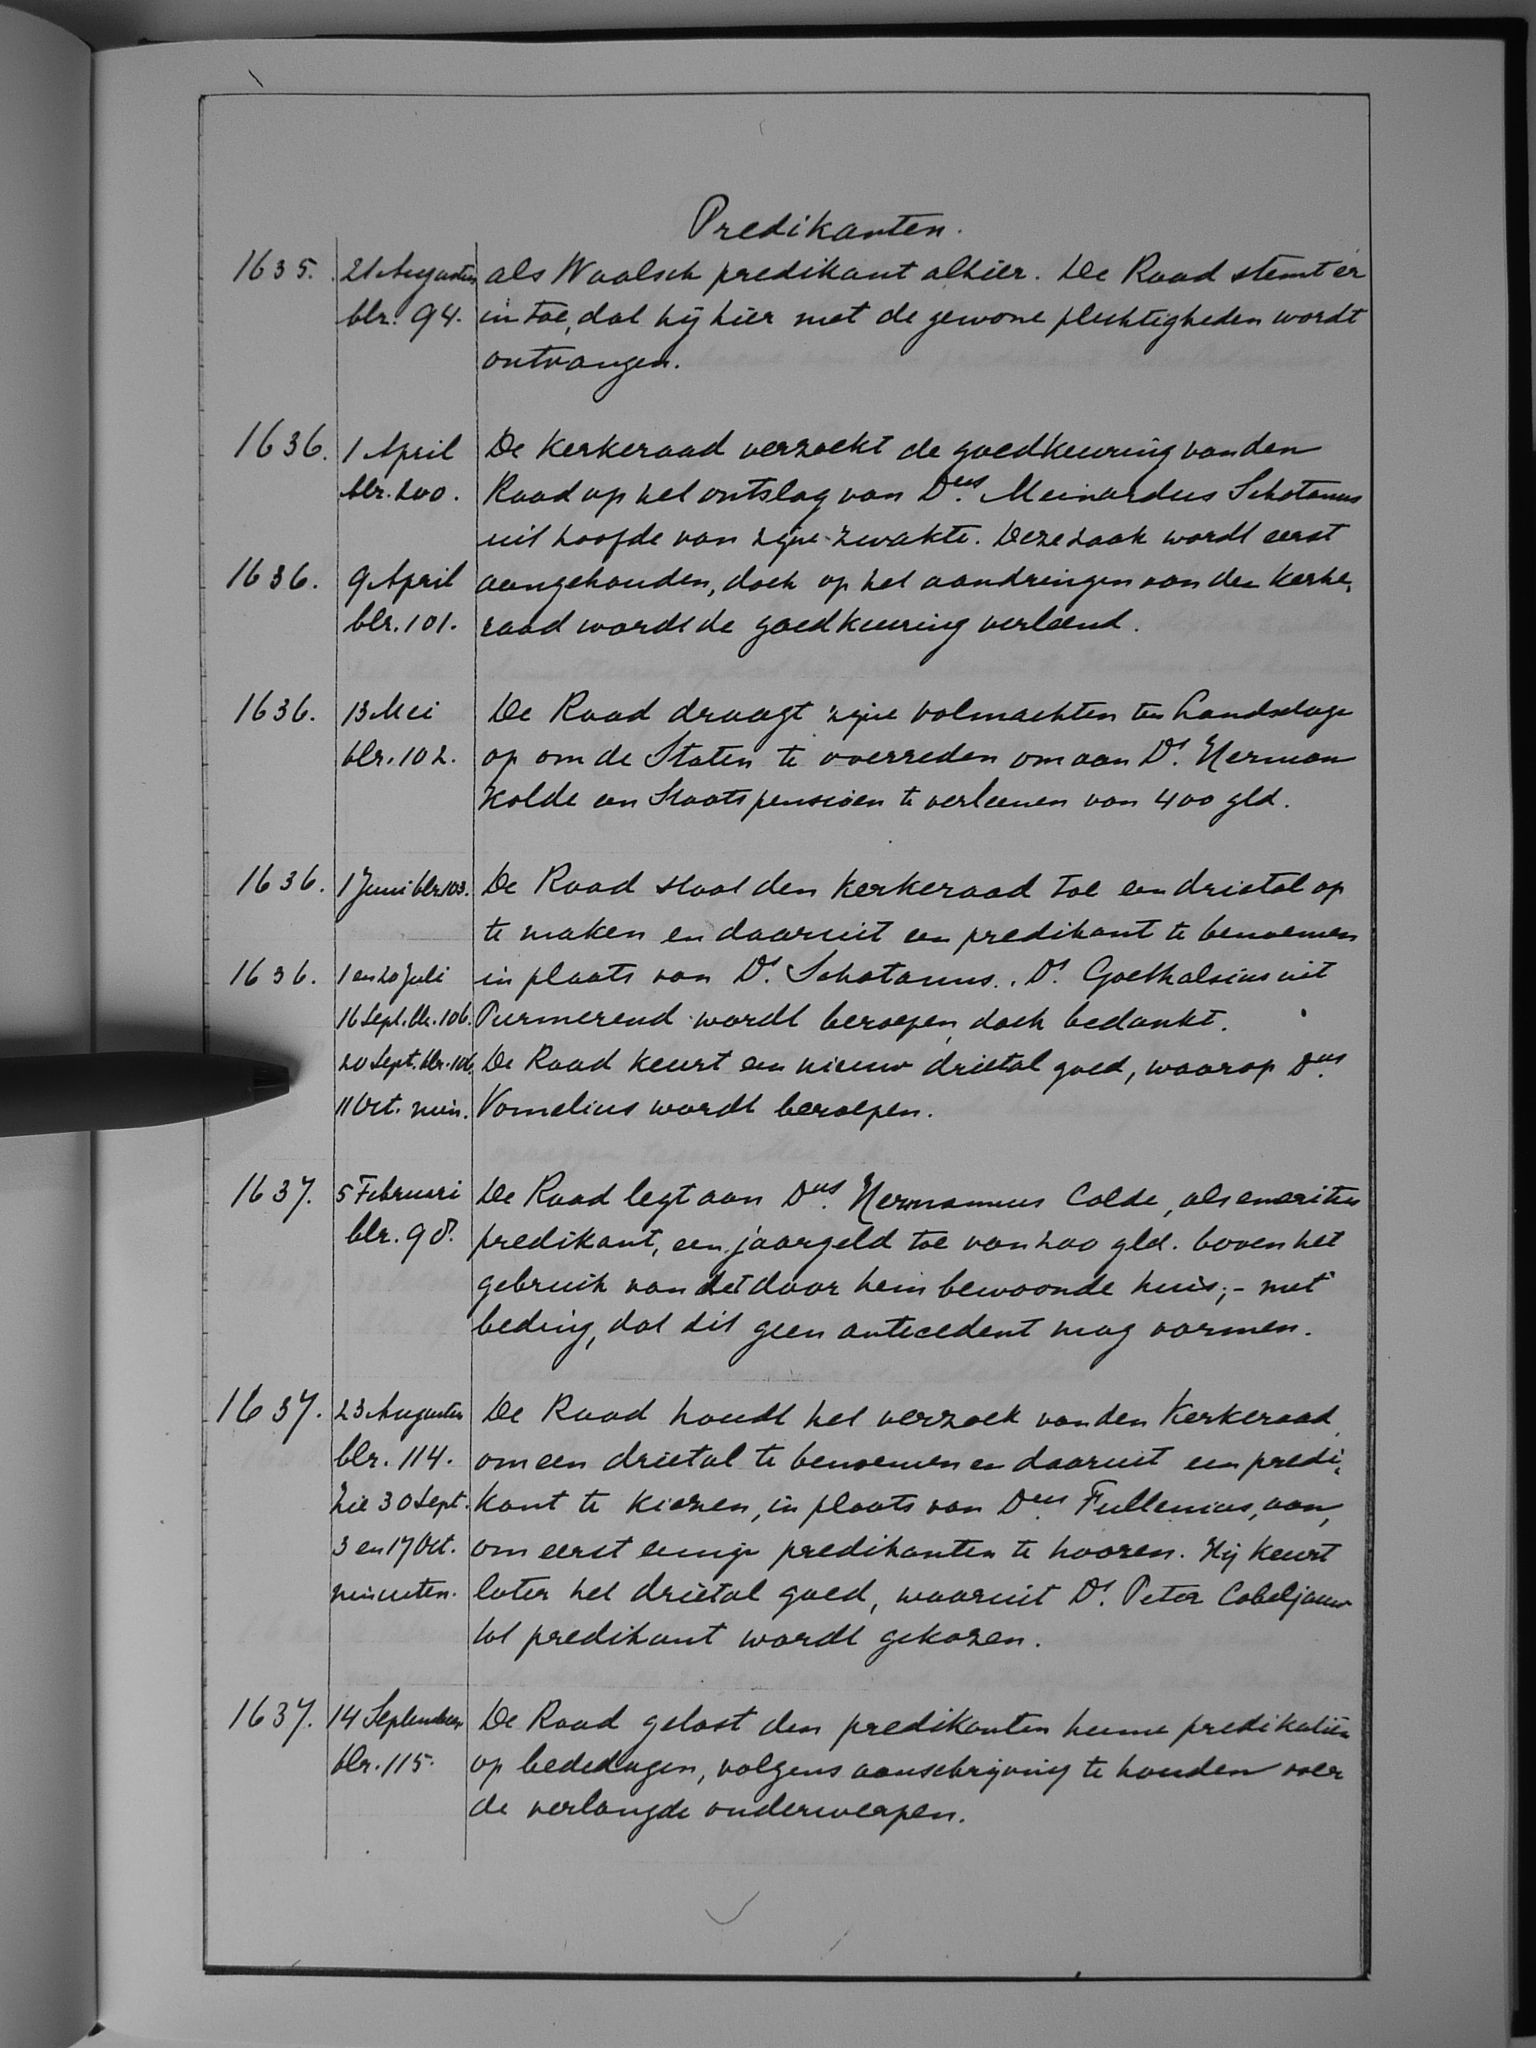 Predikanten.
1635. 21 Augustus als Waalsch predikant alhier. De Raad stemt er
blz. 94. in toe, dat hij hier met de gewone plechtigheden wordt
ontvangen.
1636. 1 April De Kerkeraad verzoekt de goedkeuring van den
blz. 200. Raad op het ontslag van Dus. Meinardus Schotanus
uit hoofde van zijne zwakte. Deze zaak wordt eerst
1636. 9 April aangehouden, doch op het aandringen van den Kerke-
blz. 101. raad wordt de goedkeuring verleend.
1636. 13 Mei De Raad draagt zijne volmachten ten Landsdage
blz. 102. op om de Staten te overreden om aan Ds. Herman
Kolde een Staatspensioen te verleenen van 400 gld.
1636. 1 Juni blz. 103. De Raad staat den Kerkeraad toe een drietal op
te maken en daaruit een predikant te benoemen
1636. 1 en 20 Juli in plaats van Ds. Schotanus. Ds. Goethalsius uit
16 Sept. blz. 106. Purmerend wordt beroepen, doch bedankt.
20 Sept. blz. 106. De Raad keurt een nieuw drietal goed, waarop Dus.
11 Oct. min. Vomelius wordt beroepen.
1637. 5 Februari De Raad legt aan Dus. Hermannus Colde, als emeritus
blz. 98. predikant, een jaargeld toe van 200 gld. boven het
gebruik van het door hem bewoonde huis; - met
beding, dat dit geen antecedent mag vormen.
1637. 23 Augustus De Raad houdt het verzoek van den Kerkeraad,
blz. 114. om een drietal te benoemen en daaruit een predi-
Zie 30 Sept. kant te kiezen, in plaats van Dus. Fullenius, aan,
3 en 17 Oct. om eerst eenige predikanten te hooren. Hij keurt
minuten. later het drietal goed, waaruit Ds. Peter Cabeljauw
tot predikant wordt gekozen.
1637. 14 September De Raad gelast den predikanten hunne predikatiën
blz. 115. op bededagen, volgens aanschrijving te houden over
de verlangde onderwerpen.